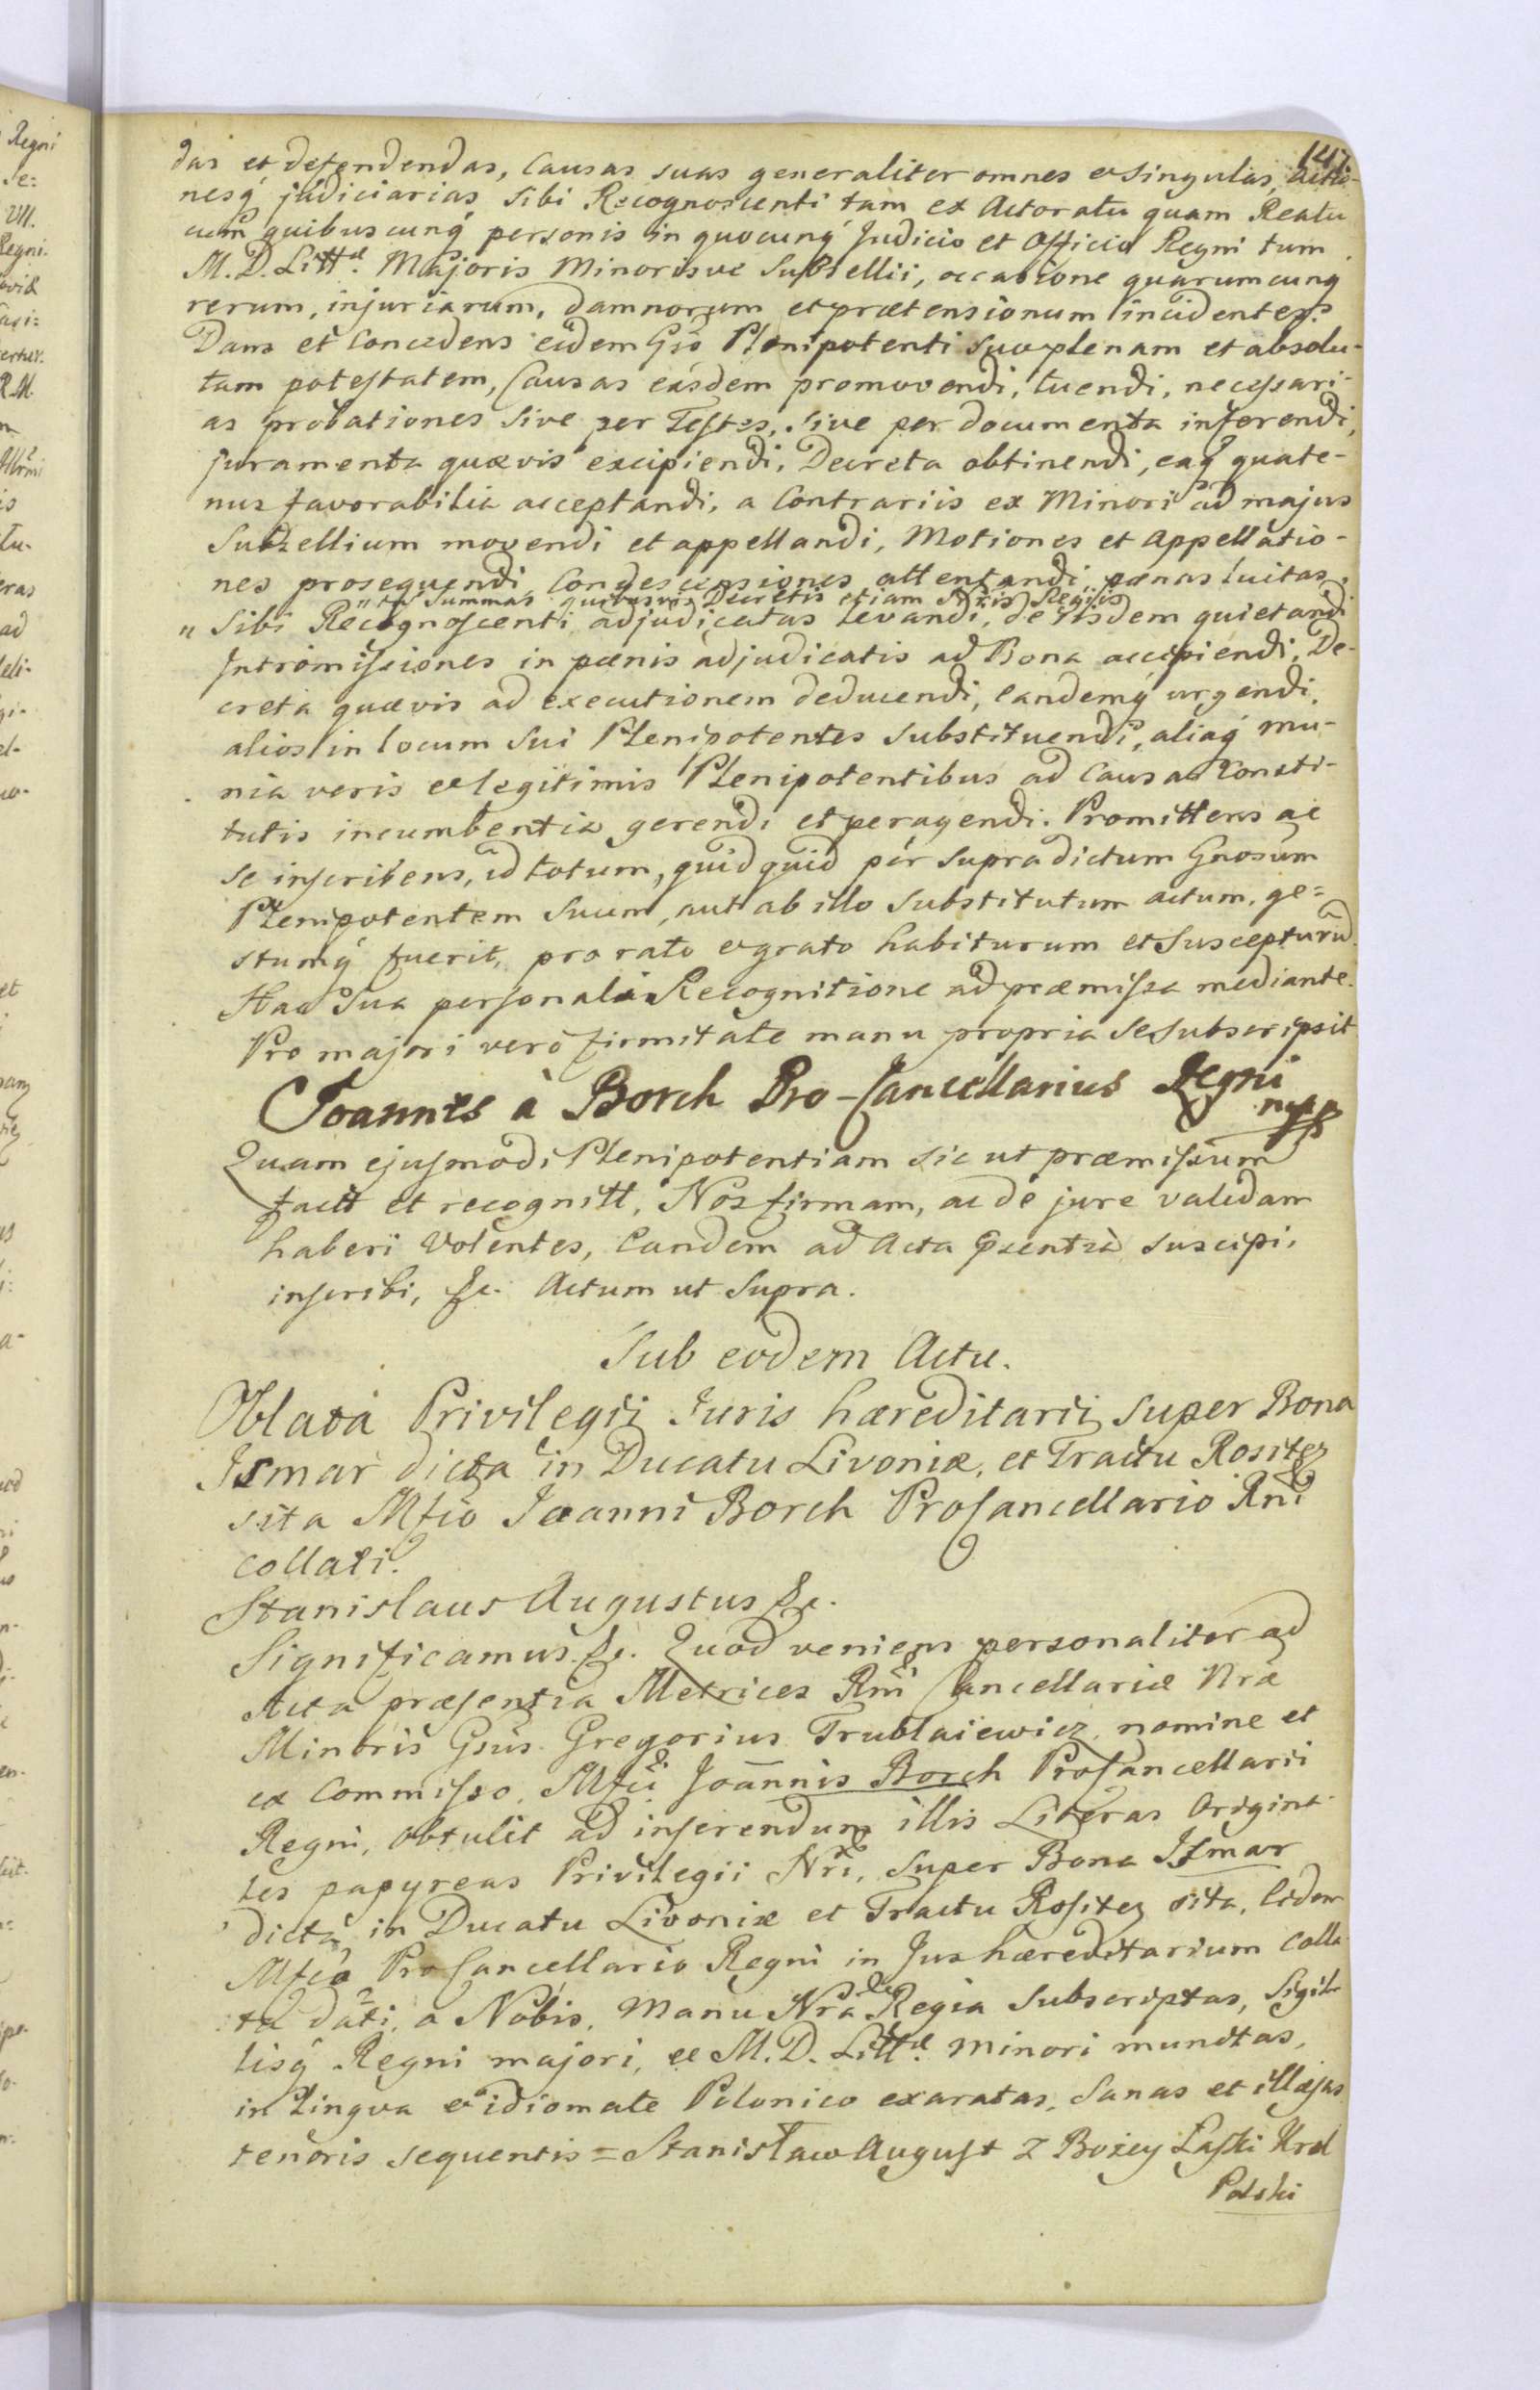 147
das et defendendas, Causas suas generaliter omnes et Singulas, Actio-
nesq́ judiciarias sibi Recognoscenti tam ex Actoratu quam Reatu
cum quibuscunq́ personis in quocunq́ Judicio et Officio Regni tum
M. D. Littæ. Majoris Minorisve Subsellii, occasione quarumcunq́
rerum, injuriarum, damnorum et prætensionum incidentes.
Dans et Concedens eidem Gso Plenipotenti suo plenam et absolu-
tam potestatem, Causas easdem promovendi, tuendi, necessari-
as probationes Sive per Testes, sive per documenta inferendi,
juramenta quævis excipiendi, Decreta obtinendi, eaq́ quate-
nus favorabilia acceptandi, a Contrariis ex Minori ad majus
Subsellium movendi et appellandi, Motiones et Appellatio-
nes prosequendi, Condescensiones attentandi, pænas luitas,
"et Summas quibusvis Decretis etiam Nris Regiis
" Sibi Recognoscenti adjudicatas levandi, de iisdem quietandi
Intromissiones in pænis adjudicatis ad Bona accipiendi, De-
creta quævis ad executionem deducendi, eandemq́ urgendi,
alios in locum sui Plenipotentes substituendi, aliaq́ mu-
nia veris et legitimis Plenipotentibus ad Causas Consti-
tutis incumbentia gerendi et peragendi. Promittens ac
se inscribens, id totum, quidquid per supradictum Gnosum
Plenipotentem Suum, aut ab illo Substitutum actum, ge=
stumq́ fuerit, pro rato et grato habiturum et Suscepturū.
Hac Sua personali Recognitione ad præmissa mediante.
Pro majori vero firmitate manu propria se subscripsit
Joannes à Borch Pro-Cancellarius Regni
mpp
Quam ejusmodi Plenipotentiam sic ut præmissum
factt et recognitt, Nos firmam, ac de jure validam
haberi Volentes, Eandem ad Acta pṡentia suscipi,
inscribi, &c. Actum ut Supra.
Sub eodem Actu.
Oblata Privilegii Juris hæreditarii super Bona
Ismar dicta in Ducatu Livoniæ, et Tractu Rositeȝ
sita Mfco Joanni Borch ProCancellario Rni
collati.
Stanislaus Augustus &c.
Significamus &c. Quod veniens personaliter ad
Acta præsentia Metrices Rni Cancellariæ Nræ
Minoris Gsus Gregorius Trublaiewicz, nomine et
ex Commisso, Mfci Joannis Borch ProCancellarii
Regni, obtulit ad inserendum illis Literas Origina-
les papyreas Privilegii Nri, super Bona Ismar
dicta in Ducatu Livoniæ et Tractu Rositeȝ sita, Eidem
Mfco ProCancellario Regni in Jus hæreditarium colla-
ta dati, a Nobis, Manu Nra Regia Subscriptas, Sigil-
lisq́ Regni majori, et M. D. Littæ. minori munitas,
in Lingva et idiomate Polonico exaratas, Sanas et illæsas
tenoris sequentis = Stanisław August z Bożey Łaski Krol
Polski